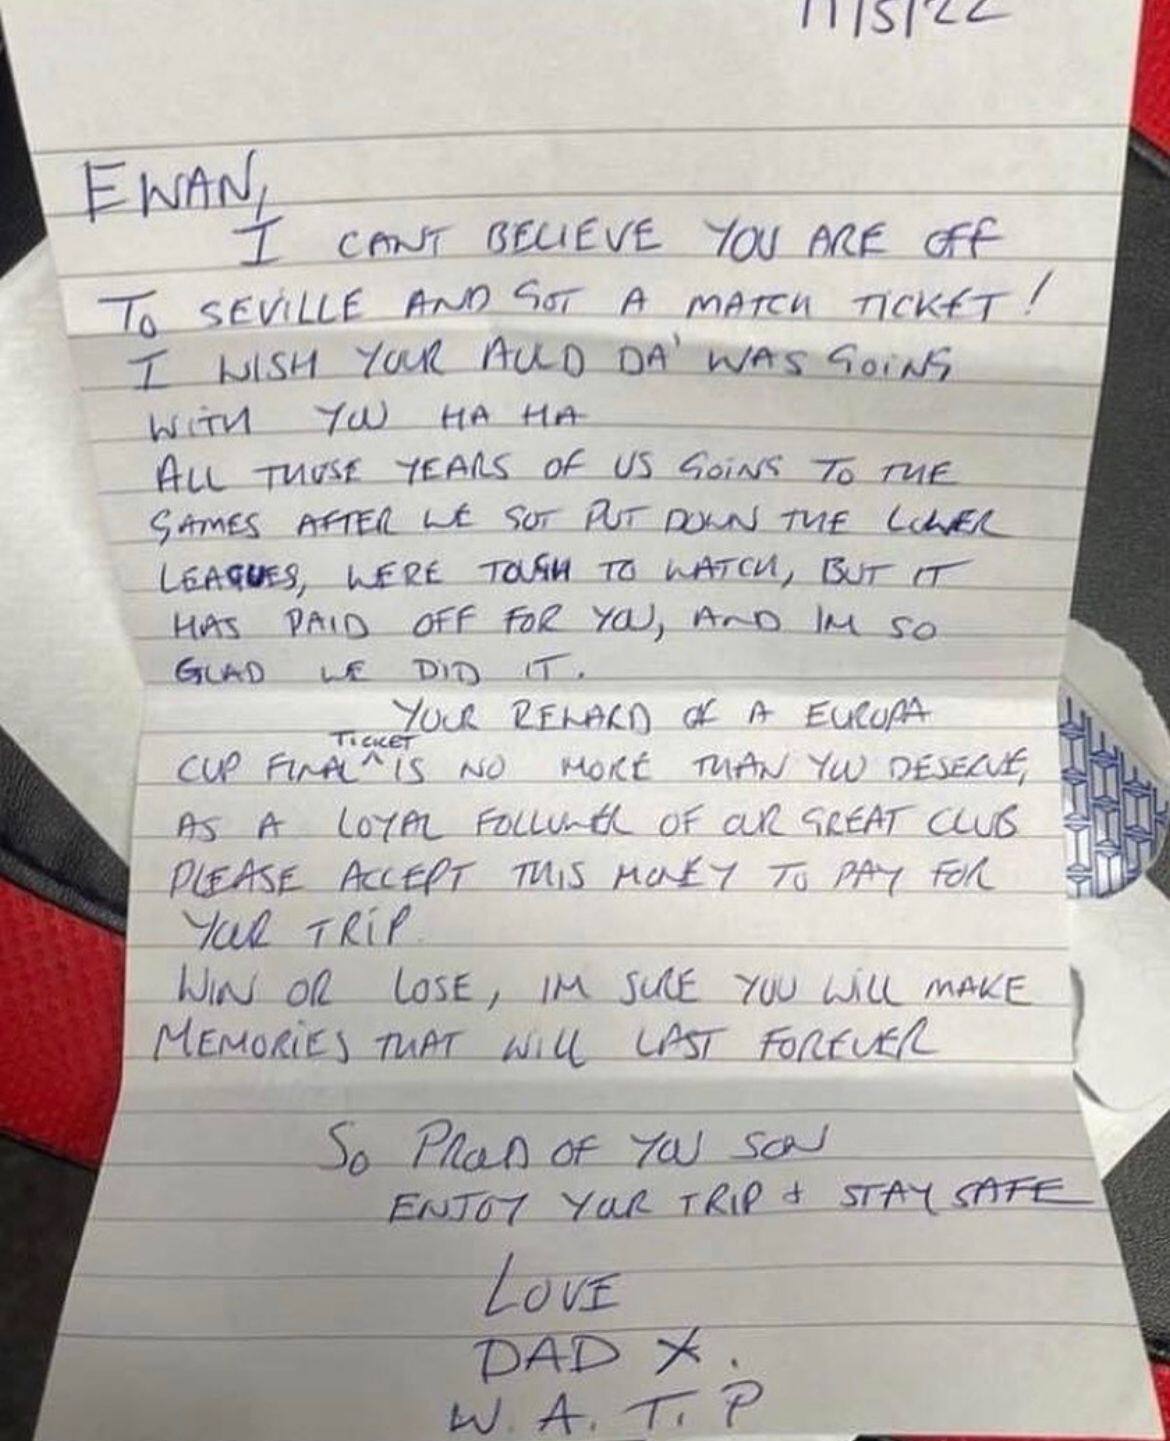 17/5/22
EWAN,
I CANT BELIEVE YOU ARE OFF
TO SEVILLE AND GOT A MATCH TICKET!
I WISH YOUR AULD DA' WAS GOING
WITH YOU HA HA
ALL THOSE YEARS OF US GOING TO THE
GAMES AFTER WE GOT PUT DOWN THE LOWER
LEAGUES, WERE TOUGH TO WATCH, BUT IT
HAS PAID OFF FOR YOU, AND IM SO
GLAD WE DID IT.
YOUR REWARD OF A EUROPA
CUP FINAL ^TICKET IS NO MORE THAN YOU DESERVE,
AS A LOYAL FOLLOWER OF OUR GREAT CLUB
PLEASE ACCEPT THIS MONEY TO PAY FOR
YOUR TRIP.
WIN OR LOSE, IM SURE YOU WILL MAKE
MEMORIES THAT WILL LAST FOREVER
SO PROUD OF YOU SON
ENJOY YOUR TRIP & STAY SAFE
LOVE
DAD X.
W.A.T.P